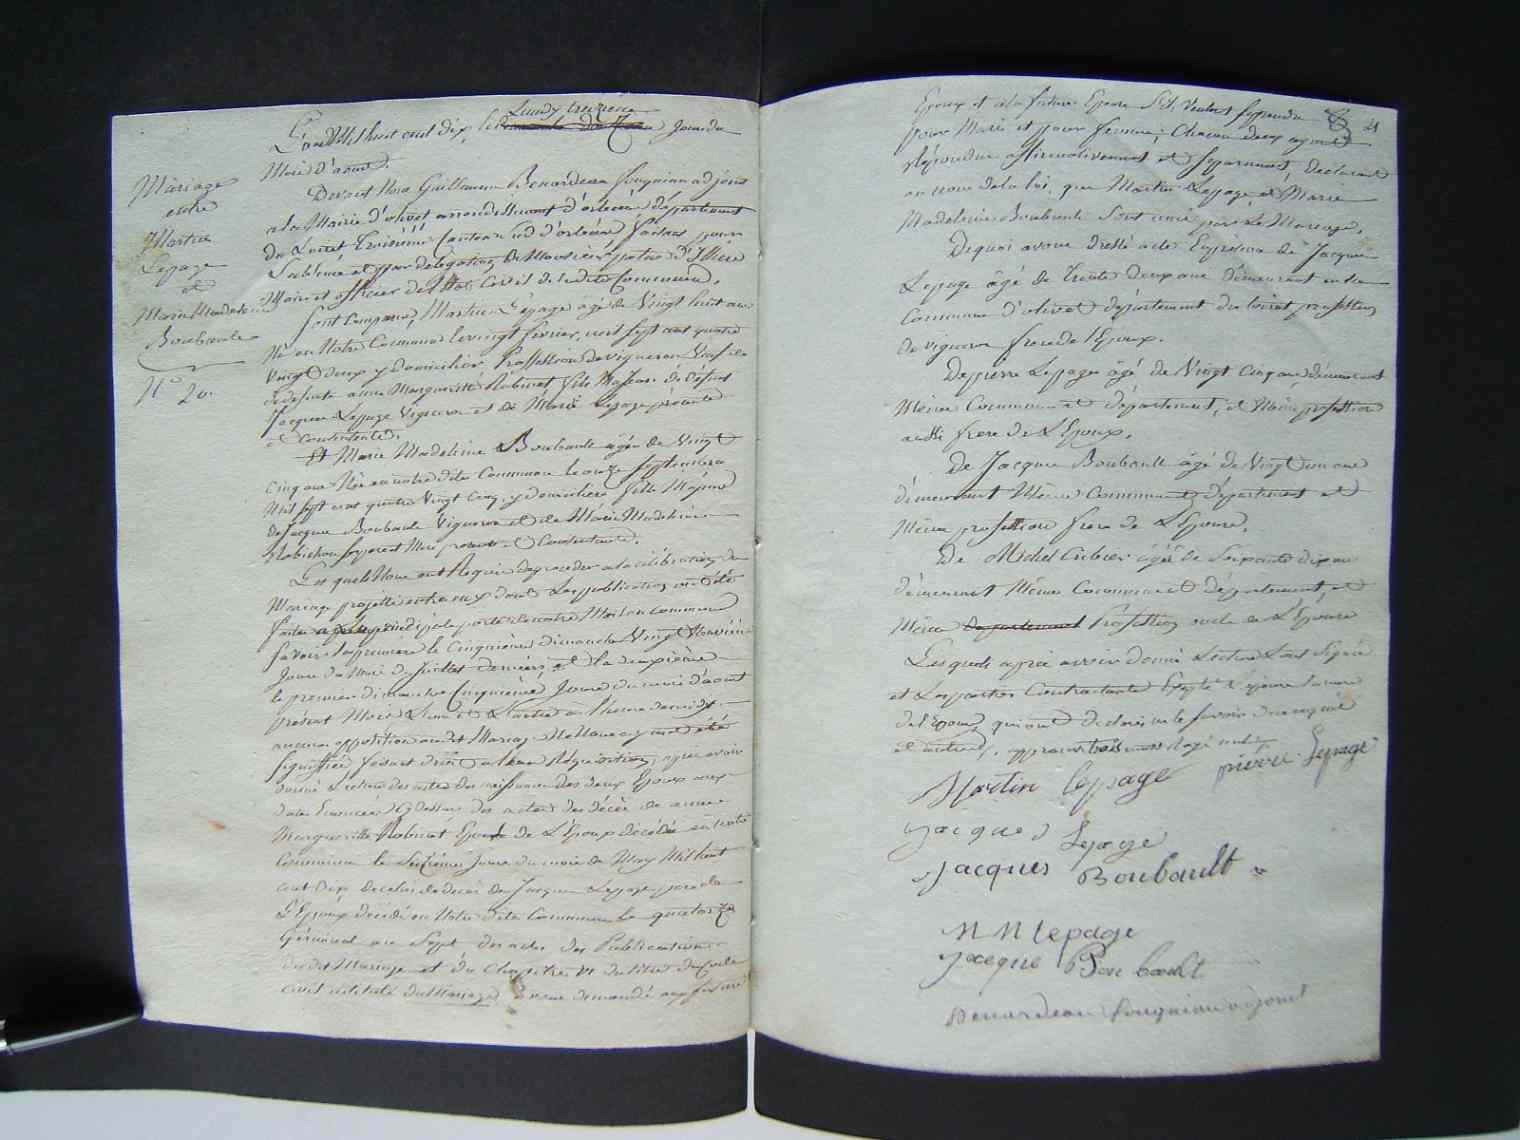 Mariage
entre
Martin
Lepage
et
Marie Madeleine
Boubault
N° 20.
Lundy treizieme
L'an Mil huit cent dix, le jour du
Mois d'aout.
Devant Nous Guillaume Benardeau fougniau adjoint
a la Mairie d'olivet arrondissement d'orleans departement
du Loiret Troisième Canton sud d'orleans faisant pour
l'absence et par délégation de Monsieur
Maire et officier de l'état Civil de ladite Commune.
Sont Comparus, Martin Lepage âgé de Vingt huit ans
Né en Notre Commune le vingt fevrier, mil sept cent quatre
Vingt deux y domicilié Proffession de vigneron Veuf de
de defunte anne Margueritte Robinet fils Majeur de défunt
Jacques Lepage Vigneron et de Marie Lepage présente
et Consentente.
Et Marie Madeleine Boubault âgée de Vingt
Cinq ans Née en notre dite Commune le onze septembre
Mil sept cent quatre Vingt Cinq, y domiciliée fille Majeure
de Jacques Boubault Vigneron et de Marie Madeleine
Robichon ses pere et Mere présents et Consentants.
Les quels Nous ont Requis de proceder a la célébration du
Mariage projetté entre eux dont les publications ont été
faites principale porte de notre Maison Commune
savoir la premiere le Cinquième dimanche Vingt Neuvième
Jour du Mois de Juillet dernier, et la deuxième
le premier dimanche Cinquième Jour du mois d'aout
présent Mois L'une et L'autre à l'heure de midi
aucune opposition audit Mariage Ne Nous ayant été
signiffiée faisant droit a leur Réquisition, après avoir
donné Lecture des actes de naissance des deux Epoux aux
dates Enoncées Cy dessus des actes de décès de anne
Margueritte Robinet Epouse de L'Epoux décédée en notre
Commune le Seizième Jour du mois de May Mil huit
cent dix de celui de décès de Jacques Lepage pere de
L'Epoux décédé en Notre dite Commune le quatorze
Germinal an Sept des actes des Publications
du dit Mariage et du Chapitre VI du titre du Code
Civil intitulé du Mariage avons demandé au futur
21
Epoux et à la future Epouse s'ils veulent se prendre
pour Mari et pour femme; Chacun d'eux ayant
Répondu affirmativement et séparement, declarons
au nom de la loi, que Martin Lepage et Marie
Madeleine Boubault sont unis par Le Mariage.
De quoi avons dressé acte En présence de Jacques
Lepage âgé de trente deux ans demeurant en la
Commune d'olivet département du loiret proffession
de vigneron frere de l'Epoux.
De pierre Lepage âgé de Vingt Cinq ans, demeurant
Même Commune et département, et Même profession
aussi frere de L'Epoux.
De Jacques Boubault âgé de Vingt un ans
demeurant Même Commune département et
Même profession frere de L'Epouse.
De Michel Cribier âgé de Soixante dix ans
demeurant Même Commune et département, et
Même departement Profession oncle de L'Epouse
Lesquels après avoir donné Lecture L'ont Signé
et Les parties Contractantes Excepté L'épouse la mere
de l'Epouse, qui ont déclaré ne le savoir de ce enquis
et interpellés, approuvé trois mots rayés nuls
Martin lepage pierre Lepage
Jacques Lepage
Jacques Boubault
M M lepage
Jacque Boubault
Benardeau fougniau adjoint